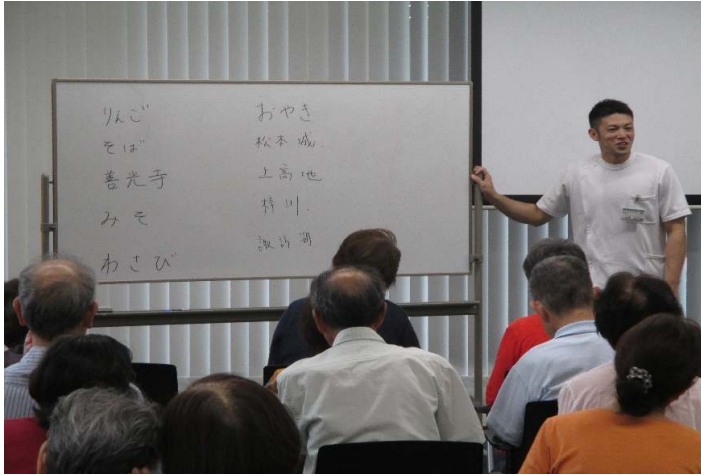 りんご
そば
善光寺
みそ
わさび
おやき
松本城.
上高地
梓川.
諏訪湖